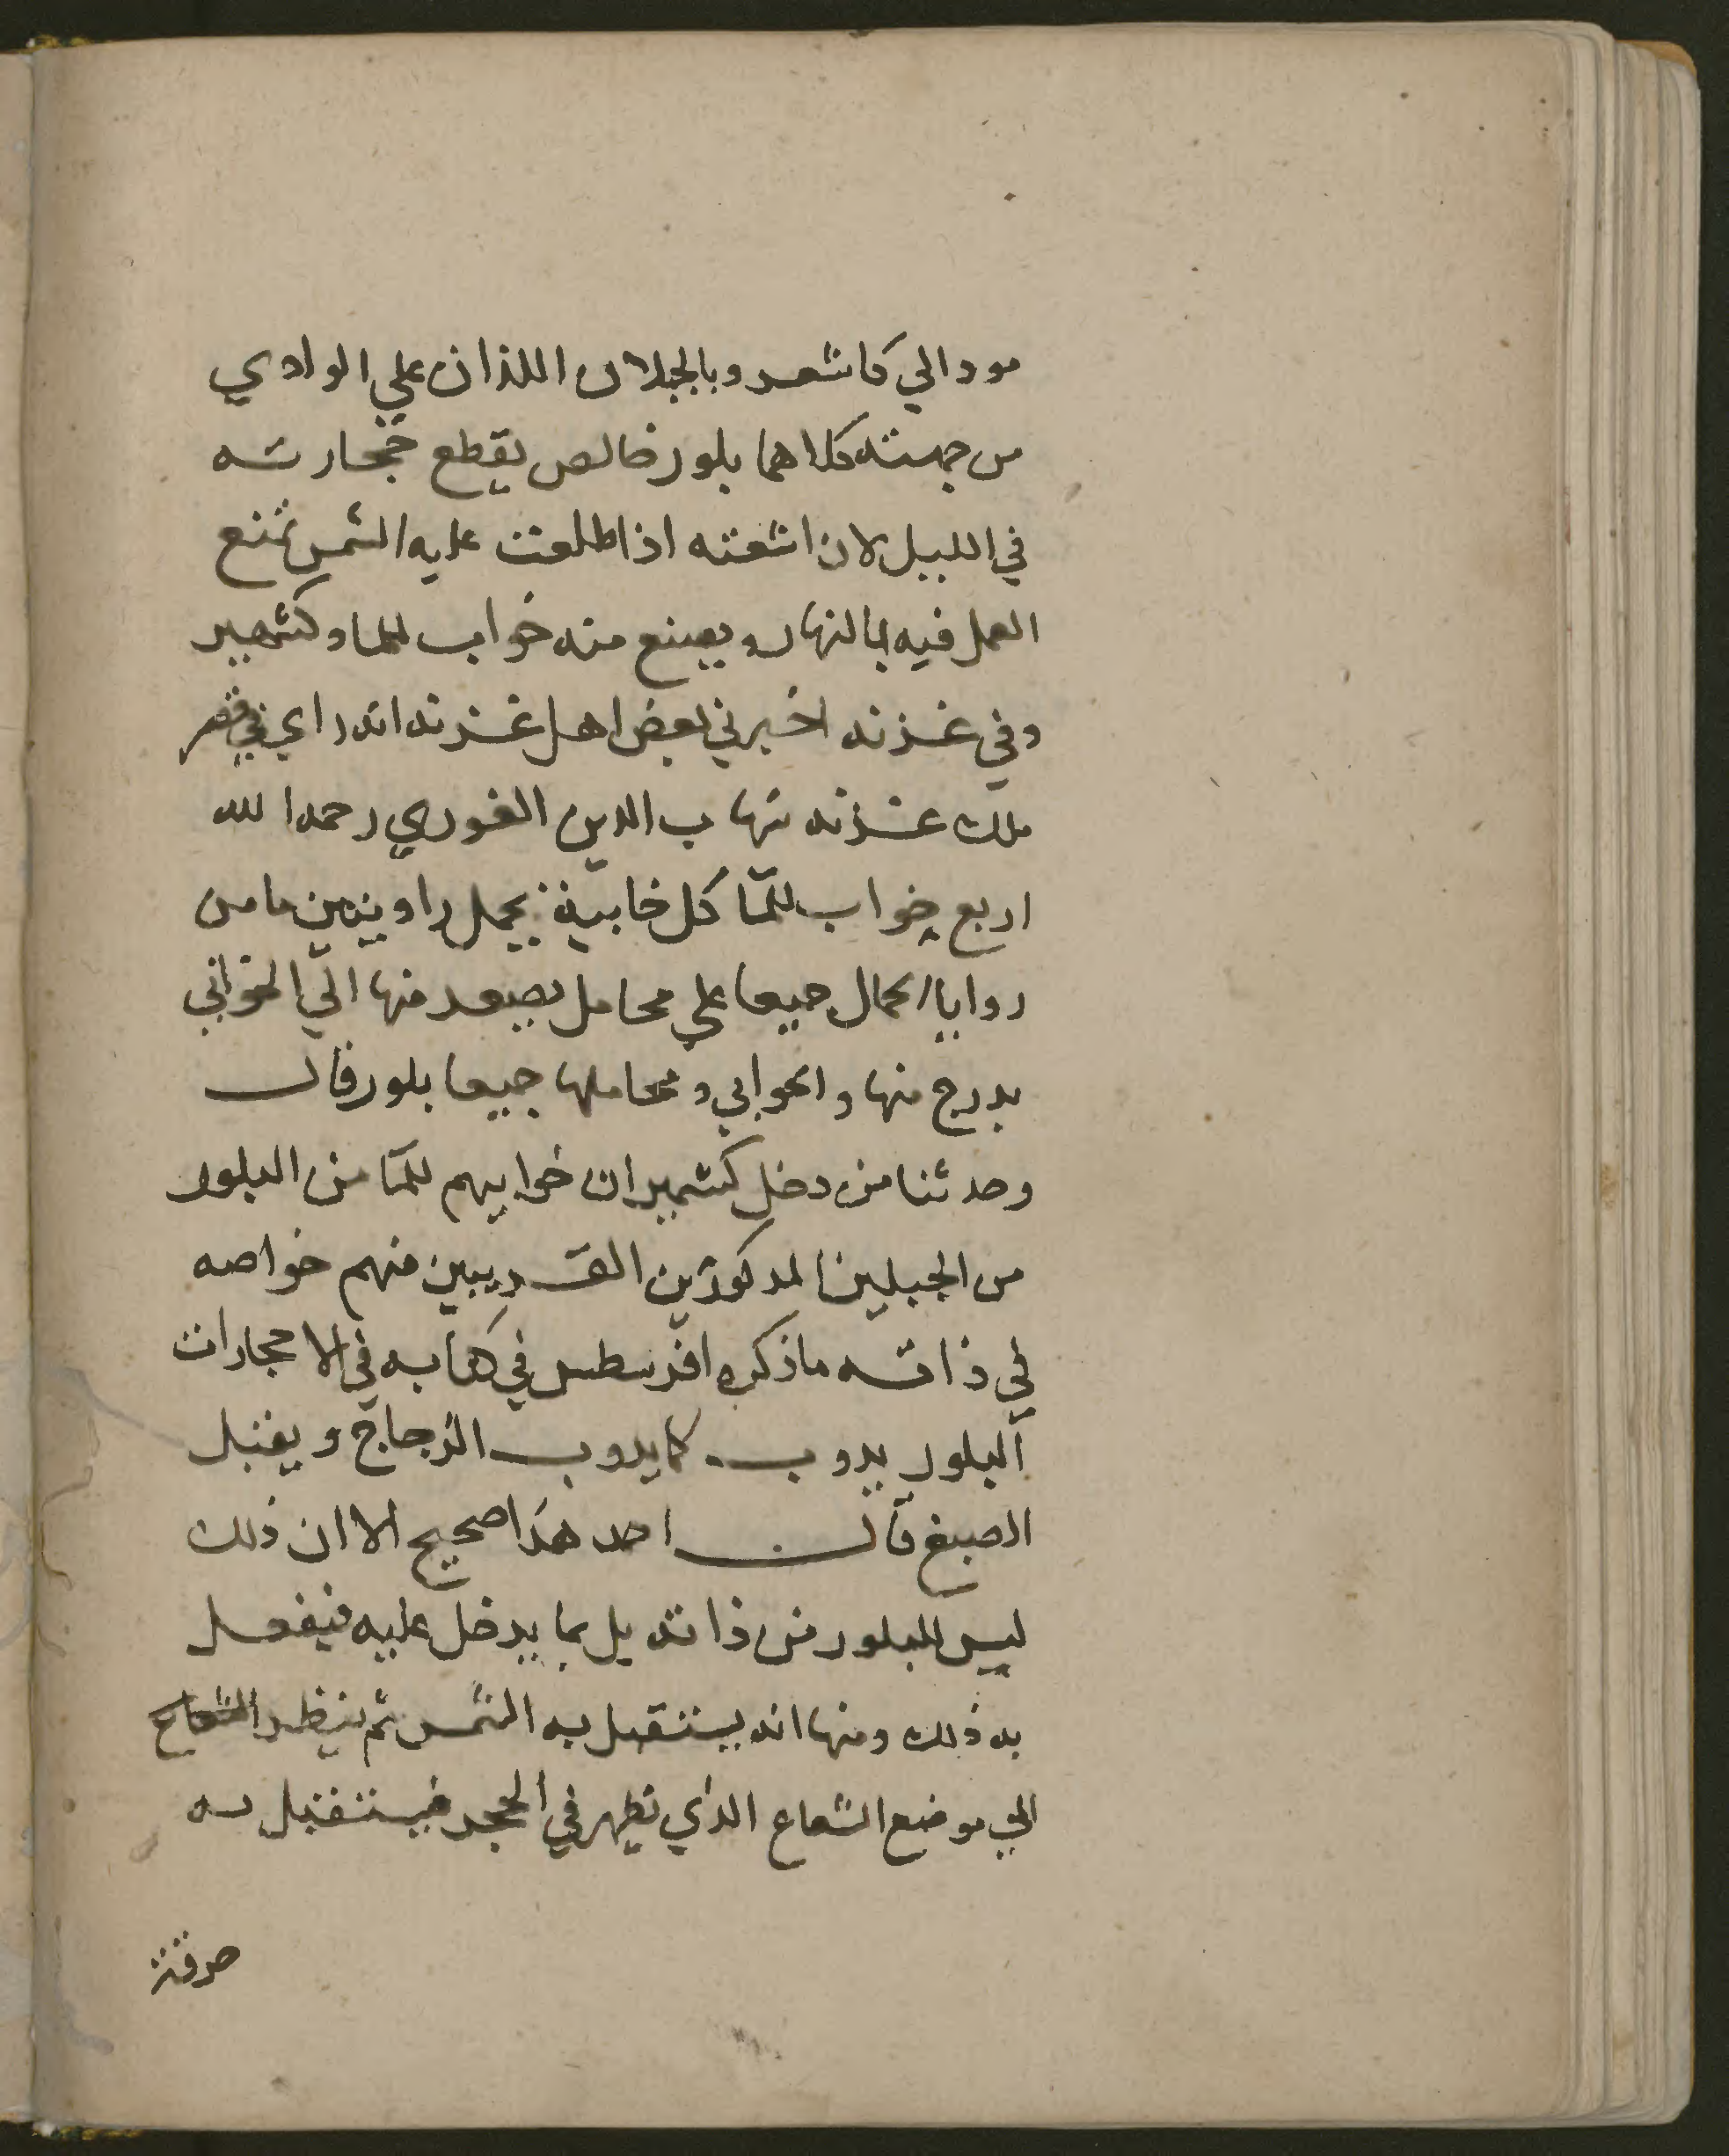 مود الي كاشعر وبالجبلان اللذان علي الوادي
من جهته كلاهما بلور خالص يقطع حجارته
في الليل لان اشعته اذا طلعت عليه الشمس تمنع
العمل فيه بالنهار ويصنع منه خواب للما وكشمير
وفي غزنه اخبرني بعض اهل غزنه انه راي في قصر
ملك غزنه شهاب الدين الغوري رحمه الله
اربع خواب للما كل خابية تحمل راويتين ما من
روايا الجمال جميعا علي محامل يصعد منها الي الخوابي
بدرج منها والخوابي ومحاملها جميعا بلور قال
وحدثنا من دخل كشمير ان خوابيهم للما من البلور
من الجبلين المدكورين القريبين منهم خواصه
في ذاته ماذكره افرسطس في كتابه في الاحجار ان
البلور يدوب كما يدوب الزجاج ويقبل
الصبغ قال احمد هذا صحيح الا ان ذلك
ليس للبلور من ذاته بل بما يدخل عليه فيفعل
به ذلك ومنها انه يستقبل به الشمس ثم ينظر الشعاع
الي موضع الشعاع الدي تظهر في الحجر فيستقبل به
خرقة